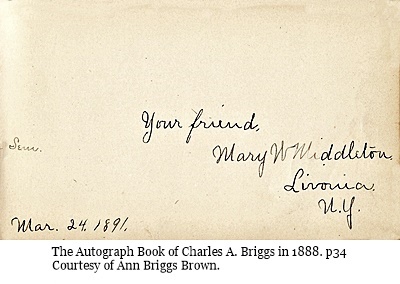 Your friend,
Mary W Middleton.
Livonia,
N.Y.
Sem.
Mar. 24. 1891.
The Autograph Book of Charles A. Briggs in 1888. p34
Courtesy of Ann Briggs Brown.